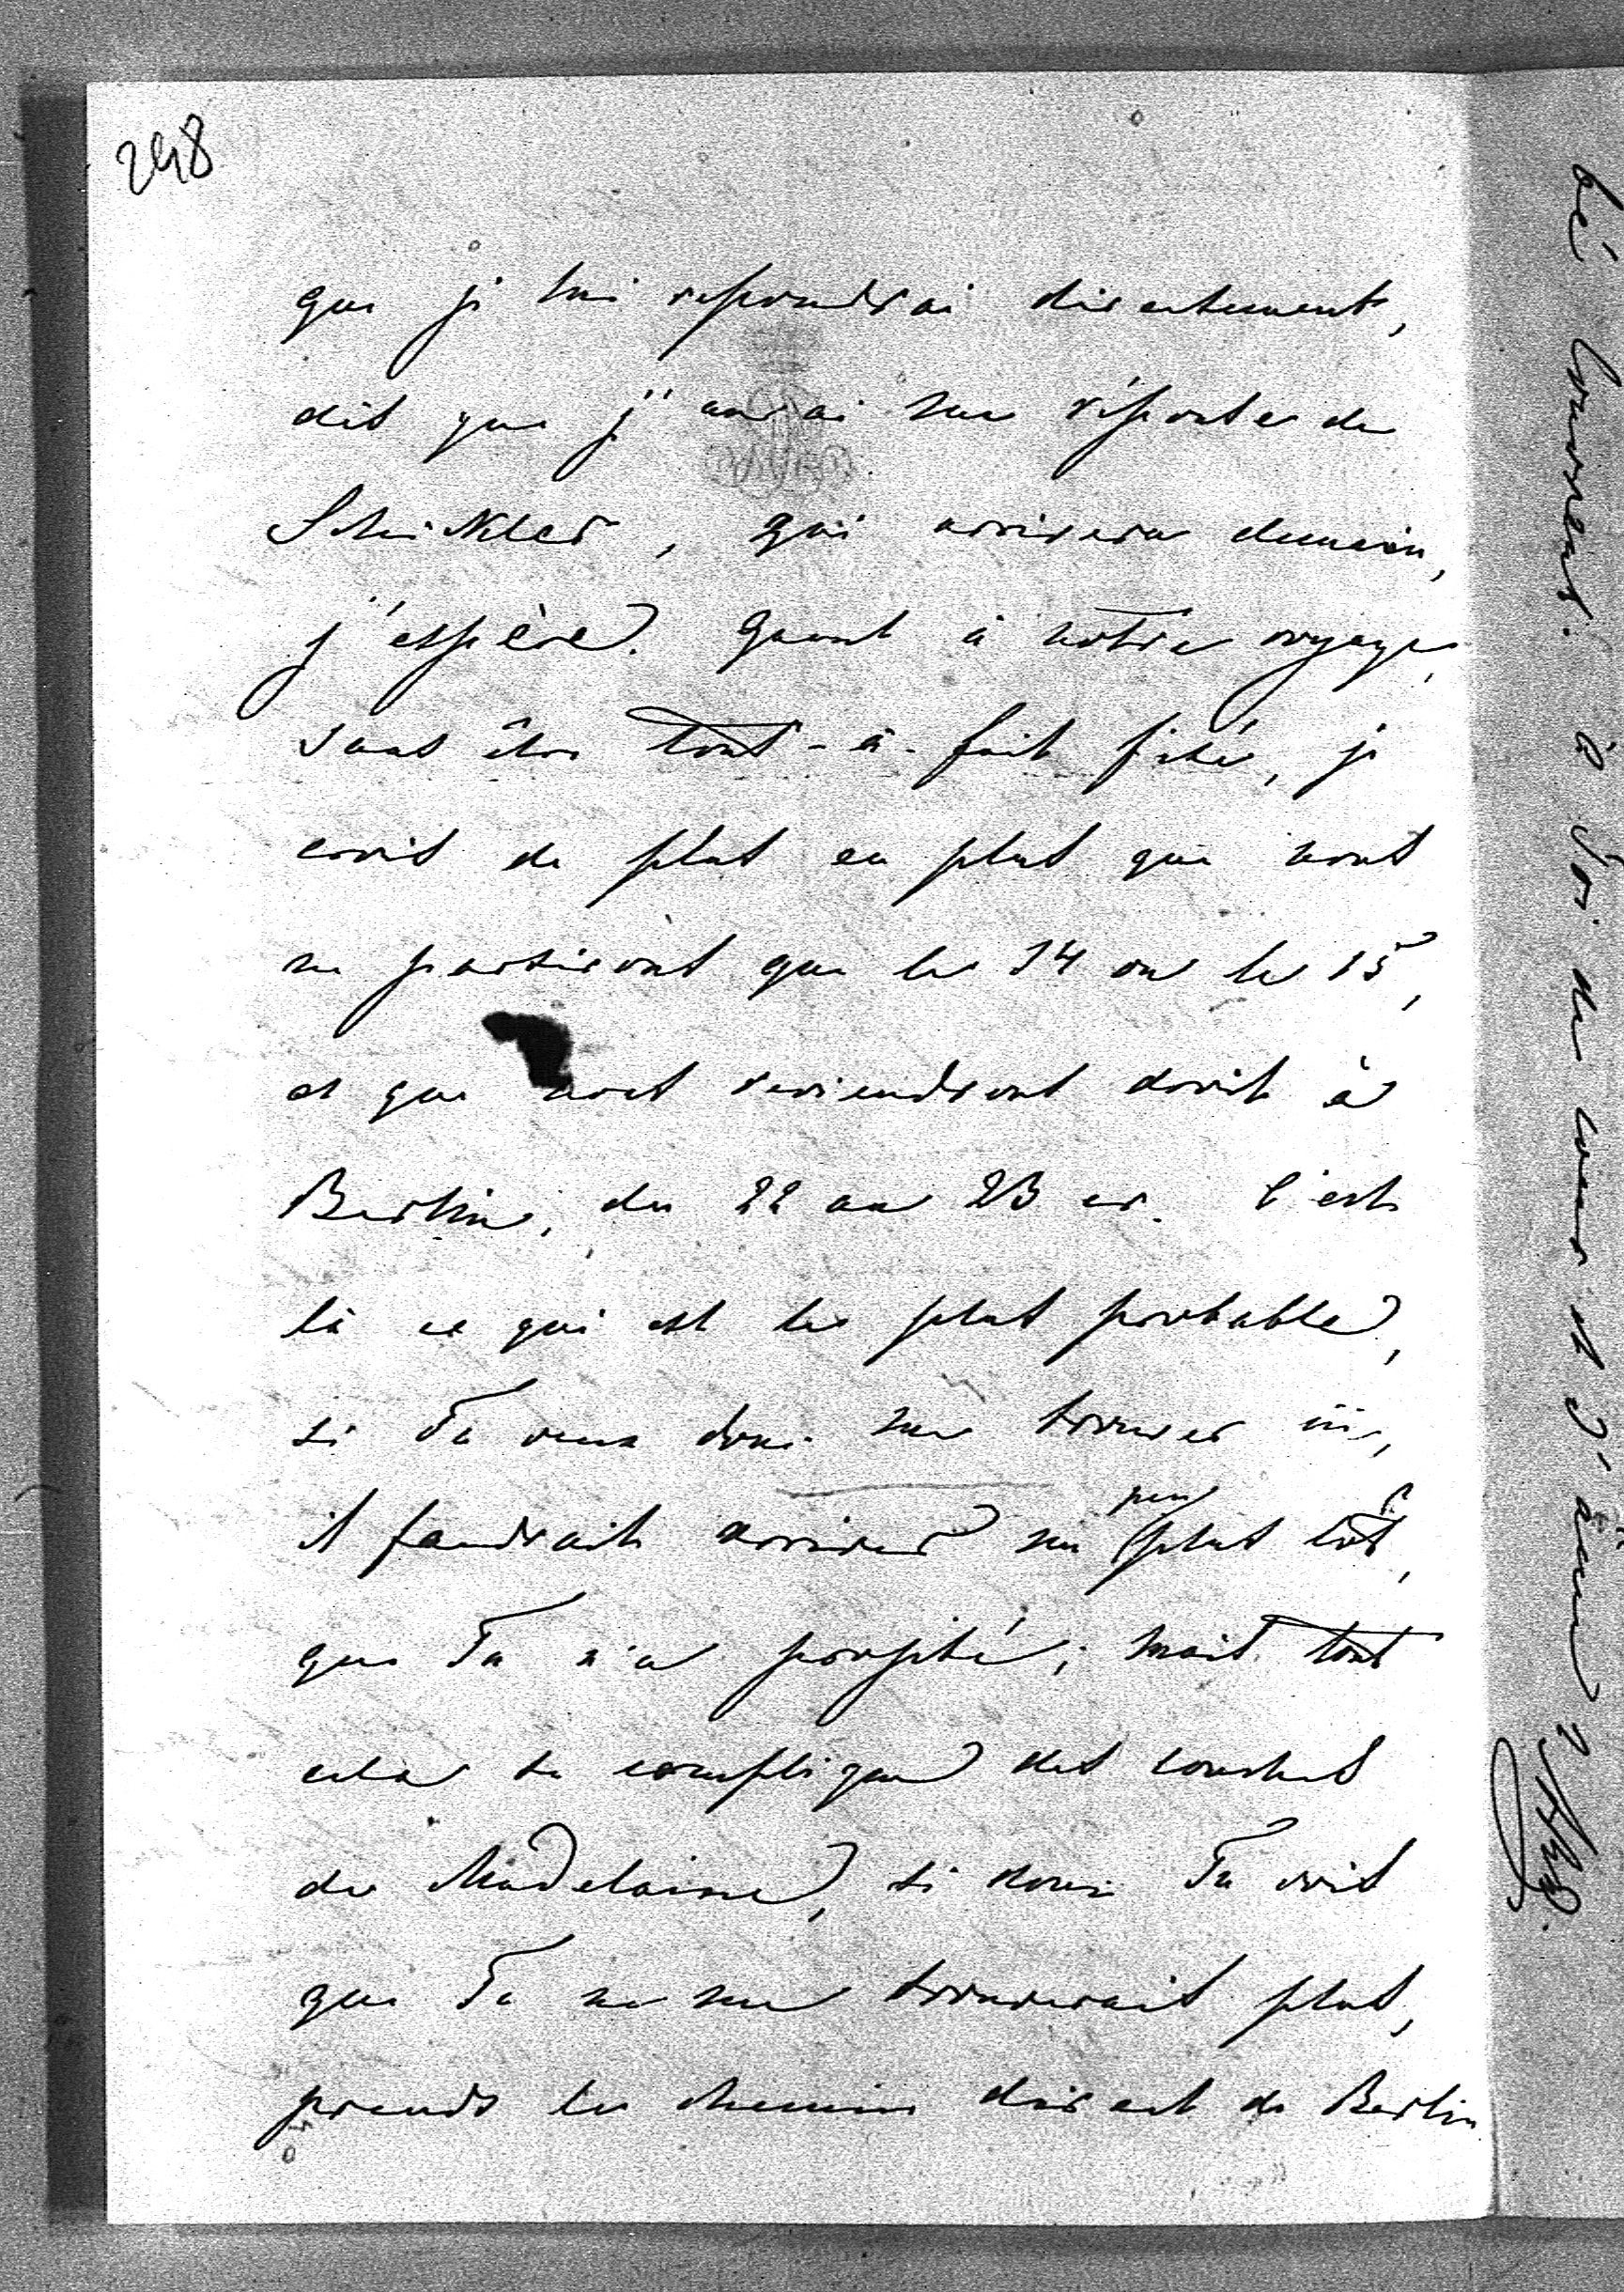 248
que je lui repondrai directement,
dès que j'aurai une réponse de
Schickler, qui arrivera demain,
j'espère. Quant à notre voyage,
sans être tout-à-fait fixé, je
crois de plus en plus que nous
ne partirons que le 14 ou le 15,
et que nous reviendrons droit à
Berlin, du 22 au 23 cr. C'est
là ce qui est le plus probable,
si Tu veux donc me trouver ici,
il faudrait arriver un peu plus tôt,
que Tu n'a projeté; mais tout
cela se complique des couches
de Madelaine, si donc Tu vois
que Tu ne me trouverais plus,
prends le chemin direct de Berlin
à Toi de coeur et d'âme